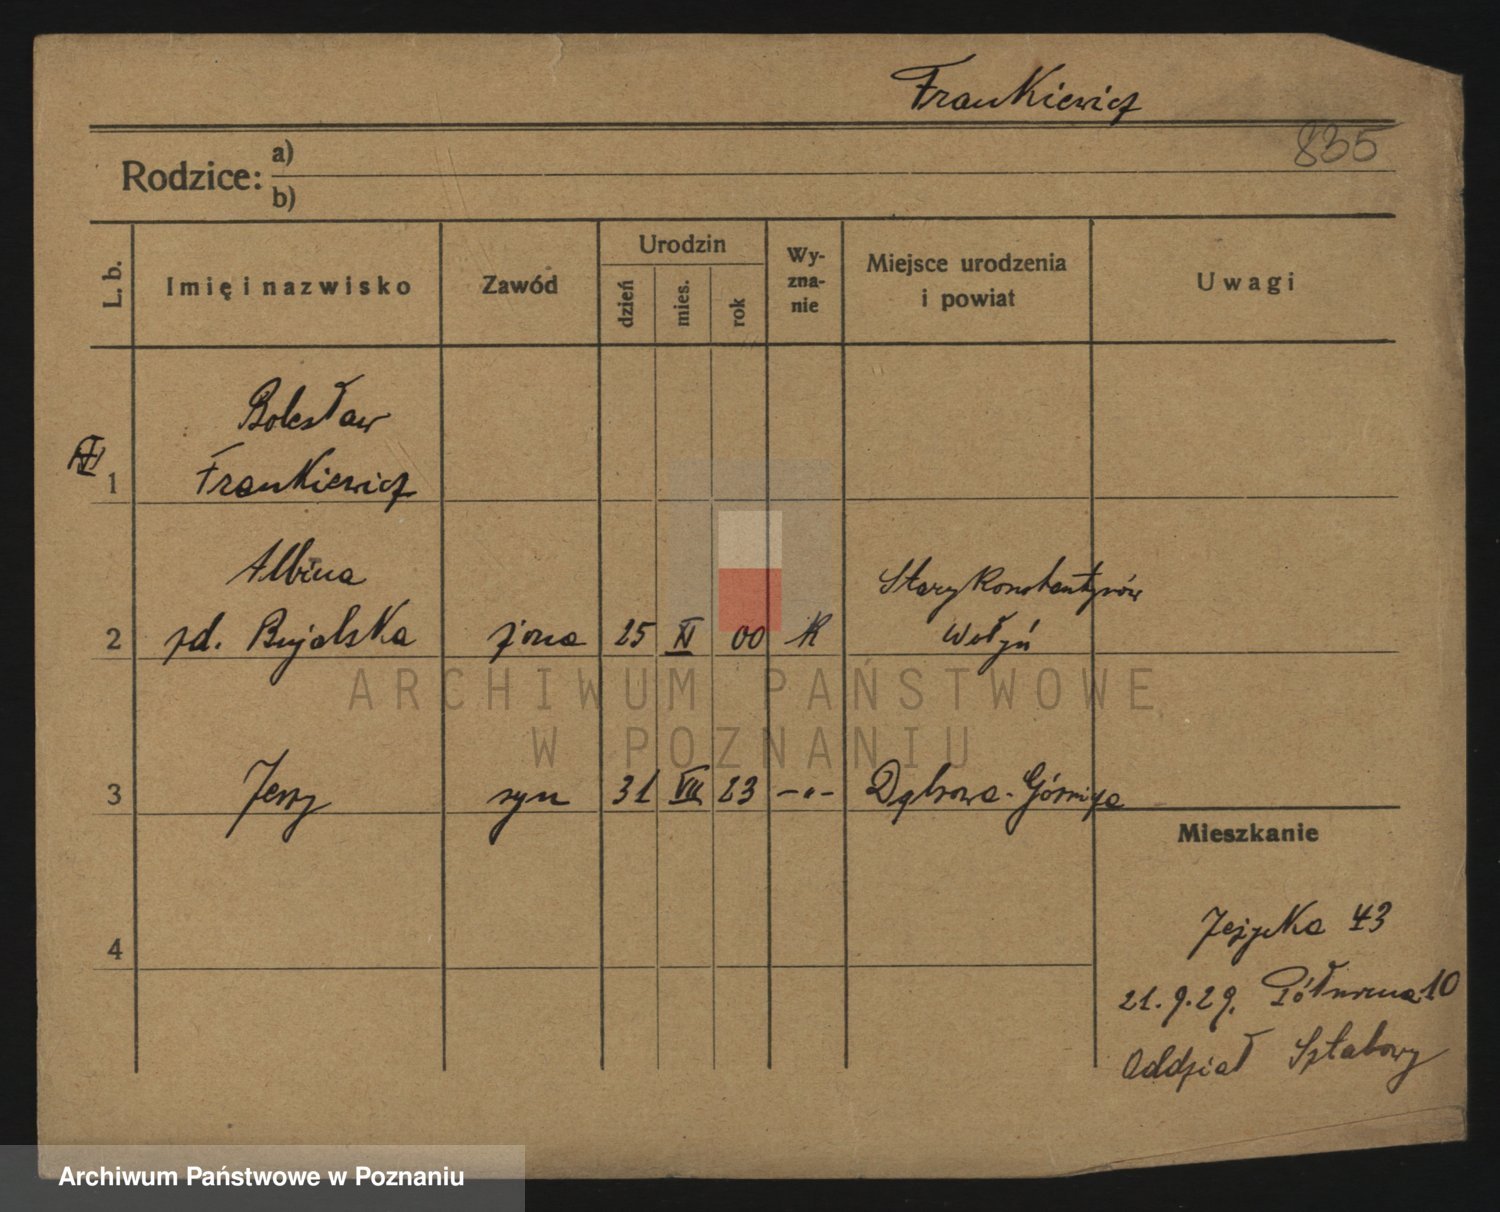 Frankiewicz
835
Rodzice: a)
b)
L. b.
Imię i nazwisko
Zawód
Urodzin
dzień
mies.
rok
Wy-
zna-
nie
Miejsce urodzenia
i powiat
Uwagi
Bolesław
1 Frankiewicz
Albina Stary Konstantynów
2 zd. Bujalska żona 25 XI 00 K Wołyń
3 Jerzy syn 31 VII 23 -"- Dąbrowa-Górnicza
Mieszkanie
4
Jeżycka 43
21.9.29. Półwiejska 10
Oddział Sztabowy
ARCHIWUM PAŃSTWOWE
W POZNANIU
Archiwum Państwowe w Poznaniu